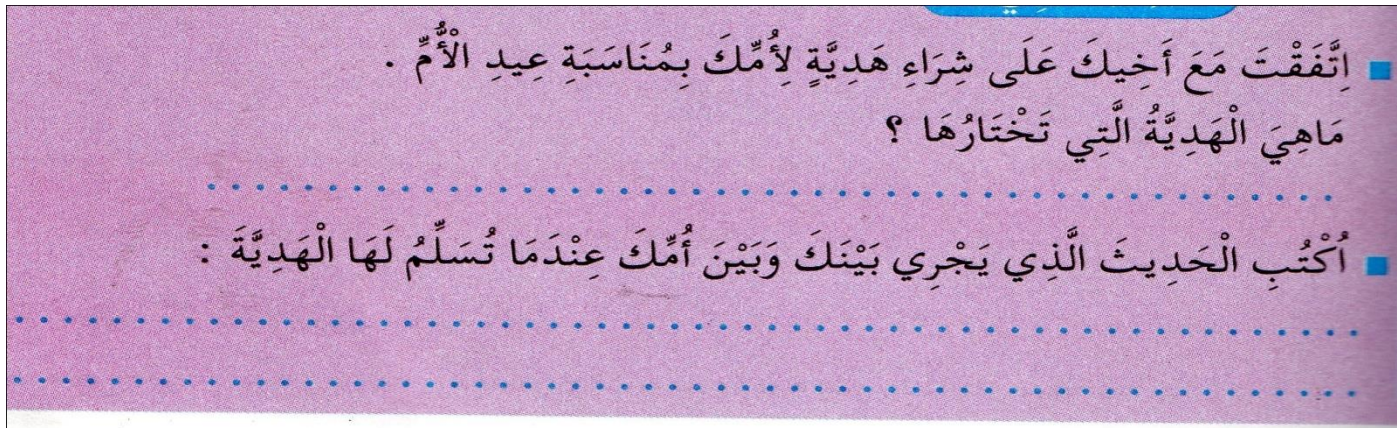 اِتَّفَقْتَ مَعَ أَخِيكَ عَلَى شِرَاءِ هَدِيَّةٍ لِأُمِّكَ بِمُنَاسَبَةِ عِيدِ الْأُمِّ .
مَاهِيَ الْهَدِيَّةُ الَّتِي تَخْتَارُهَا ؟
اُكْتُبِ الْحَدِيثَ الَّذِي يَجْرِي بَيْنَكَ وَبَيْنَ أُمِّكَ عِنْدَمَا تُسَلِّمُ لَهَا الْهَدِيَّةَ :